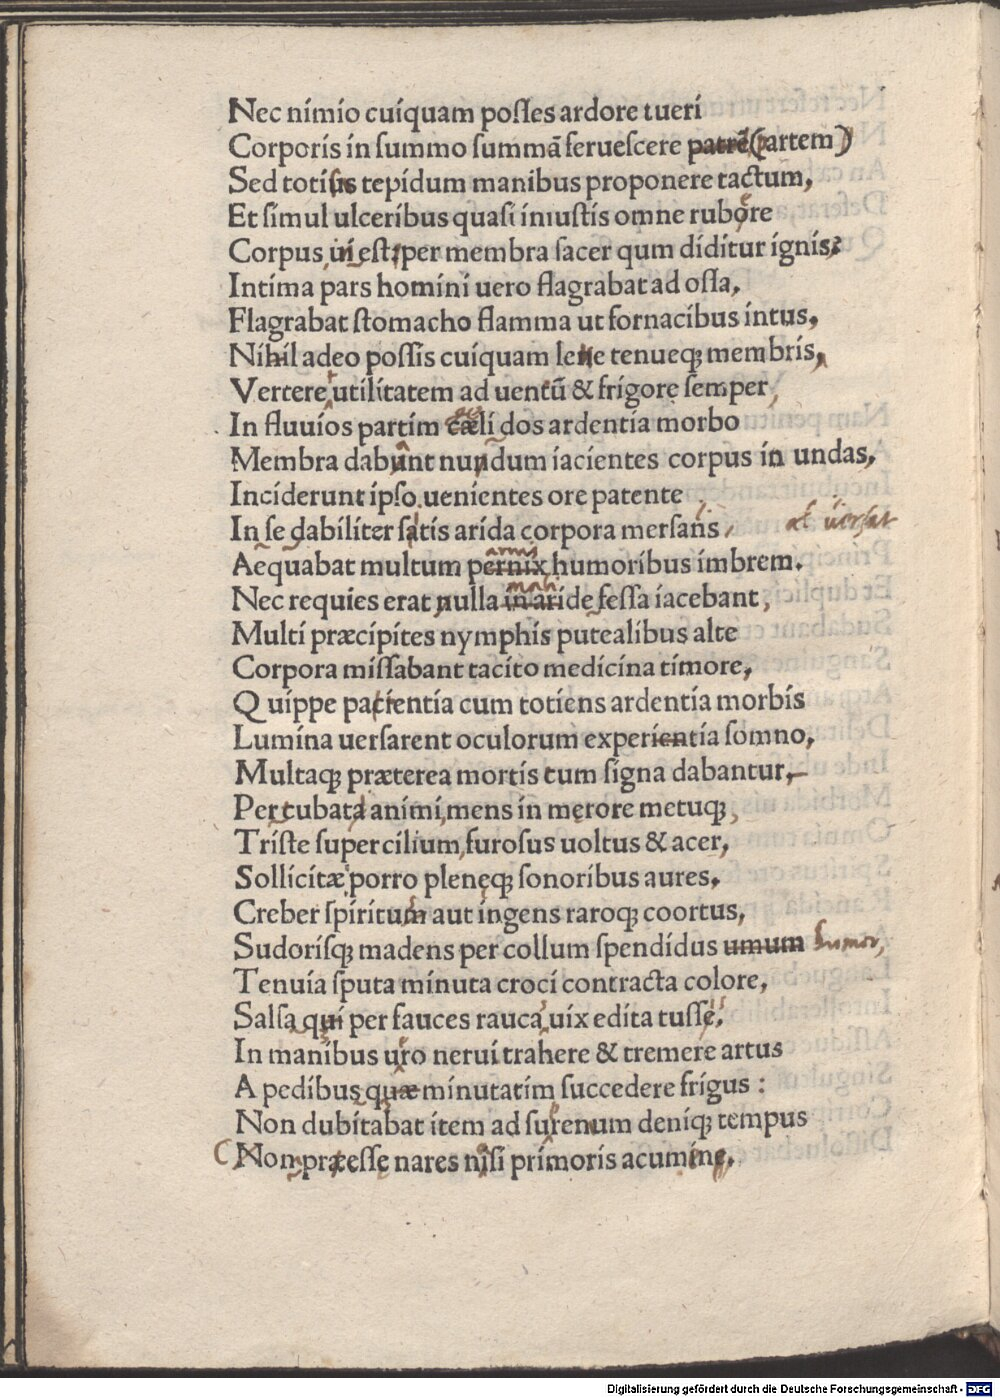 Nec nimio cuiquam posses ardore tueri
Corporis in summo summā feruescere patrē (partem)
Sed totius tepidum manibus proponere tactum,
Et simul ulceribus quasi iniustis omne rubore
Corpus ui est per membra sacer qum diditur ignis.
Intima pars homini uero flagrabat ad ossa.
Flagrabat stomacho flamma ut fornacibus intus.
Nihil adeo possis cuiquam leue tenueqꝫ membris,
Vertere utilitatem ad uentū & frigore semper,
In fluuios partim cæli dos ardentia morbo
Membra dabunt nundum iacientes corpus in undas,
Inciderunt ipso uenientes ore patente
In se dabiliter satis arida corpora mersans
Aequabat multum pernix humoribus imbrem.
Nec requies erat nulla in ari de fessa iacebant,
Multi præcipites nymphis putealibus alte
Corpora missabant tacito medicina timore,
Quippe patientia cum totiens ardentia morbis
Lumina uersarent oculorum experientia somno,
Multaqꝫ præterea mortis tum signa dabantur,
Percubata animi mens in merore metuqꝫ,
Triste supercilium, furosus uoltus & acer,
Sollicitæ porro pleneqꝫ sonoribus aures.
Creber spiritum aut ingens raroqꝫ coortus,
Sudorisqꝫ madens per collum spendidus umum humor,
Tenuia sputa minuta croci contracta colore,
Salsa qui per fauces rauca uix edita tusse.
In manibus uro nerui trahere & tremere artus
A pedibus quæ minutatim succedere frigus :
Non dubitabat item ad surenum deniqꝫ tempus
Non præesse nares nisi primoris acumine.
Digitalisierung gefördert durch die Deutsche Forschungsgemeinschaft - DFG